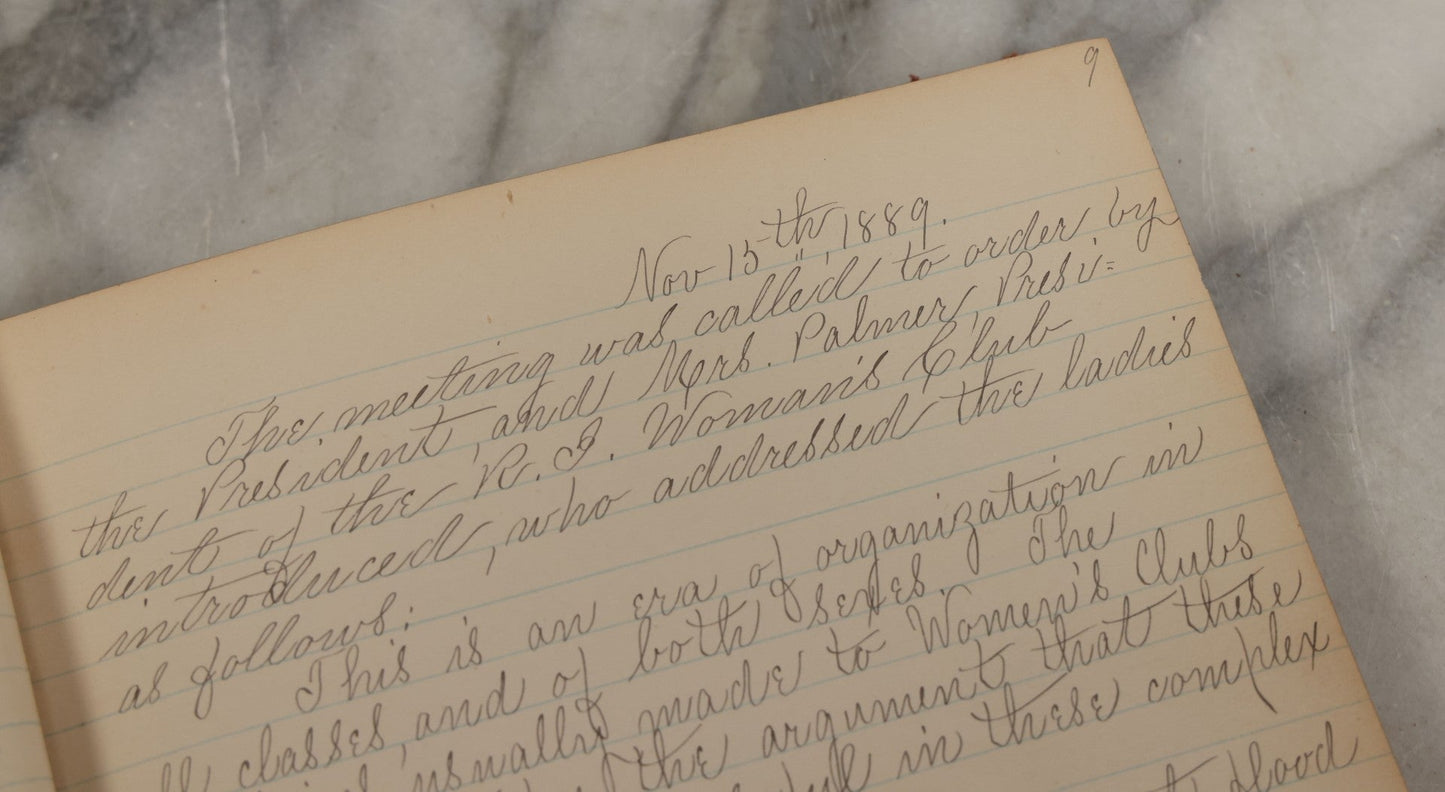 9
Nov 15th, 1889.
The meeting was called to order by
the President, and Mrs. Palmer, Presi=
dent of the R. I. Woman's Club
introduced, who addressed the ladies
as follows:
This is an era of organization in
classes, and of both sexes. The
usually made to Women's Clubs
the argument that these
in these complex
flood